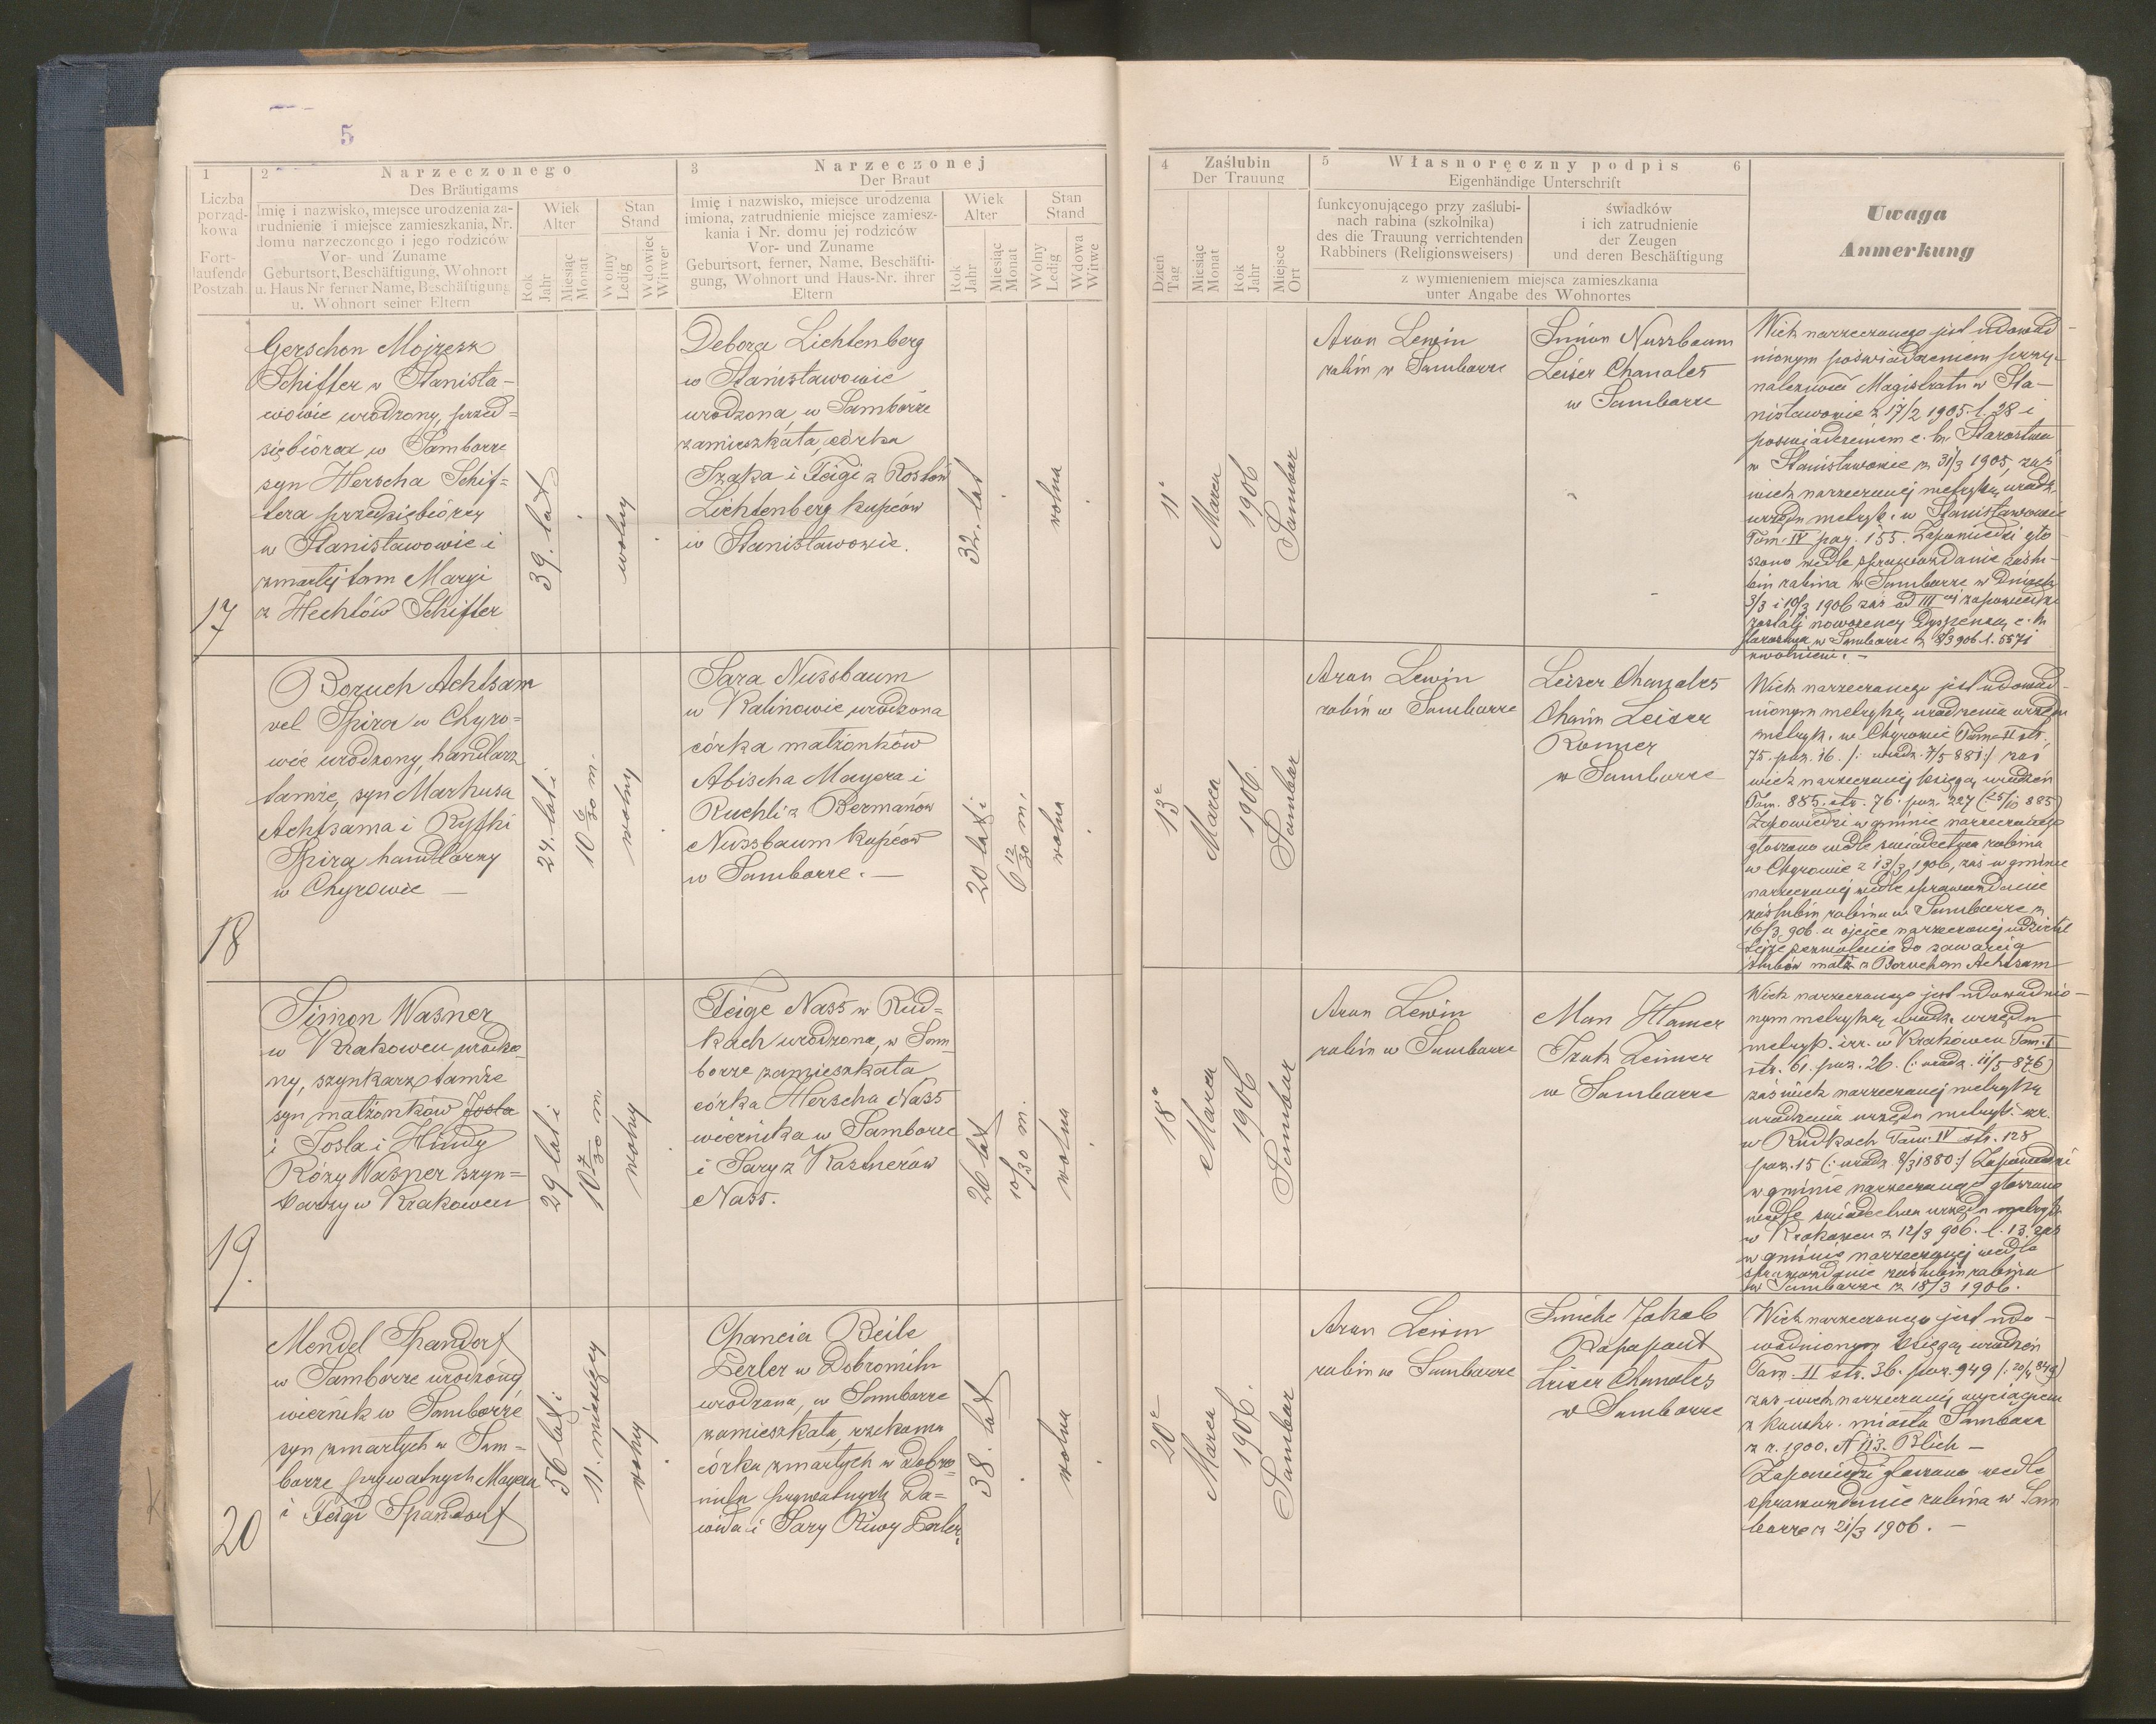 5
1
2
Narzeczonego
Des Bräutigams
3
Narzeczonej
Der Braut
Liczba
porząd-
kowa
Fort-
laufende
Postzah.
Imię i nazwisko, miejsce urodzenia za-
trudnienie i miejsce zamieszkania, Nr.
domu narzeczonego i jego rodziców
Vor- und Zuname
Geburtsort, Beschäftigung, Wohnort
u. Haus Nr ferner Name, Beschäftigung
u. Wohnort seiner Eltern
Wiek
Alter
Rok
Jahr
Miesiąc
Monat
Stan
Stand
Wolny
Ledig
Wdowiec
Witwer
Imię i nazwisko, miejsce urodzenia
imiona, zatrudnienie miejsce zamiesz-
kania i Nr. domu jej rodziców
Vor- und Zuname
Geburtsort, ferner, Name, Beschäfti-
gung, Wohnort und Haus-Nr. ihrer
Eltern
Wiek
Alter
Rok
Jahr
Miesiąc
Monat
Stan
Stand
Wolny
Ledig
Wdowa
Witwe
4
Zaślubin
Der Trauung
Dzień
Tag
Miesiąc
Monat
Rok
Jahr
Miejsce
Ort
5
Własnoręczny podpis
6
Eigenhändige Unterschrift
funkcyonującego przy zaślubi-
nach rabina (szkolnika)
des die Trauung verrichtenden
Rabbiners (Religionsweisers)
świadków
i ich zatrudnienie
der Zeugen
und deren Beschäftigung
z wymienieniem miejsca zamieszkania
unter Angabe des Wohnortes
Uwaga
Anmerkung
17
Gerschon Mojżesz
Schiffer w Stanisła-
wowie urodzony, przed=
siębiorca w Samborze
syn Herscha Schif=
fera przedsiębiorcy
w Stanisławowie i
zmarłej tam Maryi
z Hechtów Schiffer
39. lat
wolny
Debora Lichtenberg
w Stanisławowie
urodzona w Samborze
zamieszkała, córka
Izaka i Feigi z
Lichtenberg kupców
w Stanisławowie.
32. lat
wolna
11º
Marca
1906
Sambor
Aron Lewin
rabin w Samborze
Simon Nussbaum
Leiser Chanales
w Samborze
Wiek narzeczonego jest udowod-
nionym poświadczeniem przy-
należności Magistratu w Sta-
nisławowie z 17/2 1905. l. 28 i
poświadczeniem c. k. Starostwa
w Stanisławowie z 31/3 1905, zaś
wiek narzeczonej metryką urodz.
urzędu metryk. w Stanisławowie
Tom. IV pag. 155. Zapowiedzi gło-
szono wedle sprawozdania zaślu-
bin rabina w Samborze w dniach
3/3 i 10/3 1906 zaś od III ej zapowiedzi
zostali nowożeńcy dyspensą c. k.
Starostwa w Samborze z 8/3 906. l. 5571
zwolnieni. —
18
Boruch Achtsam
vel Spira w Chyro=
wie urodzony, handlarz
tamże, syn Markusa
Achtsama i Ryfki
Spira handlarzy
w Chyrowie —
24. lat i
10 6/30 m.
wolny
Sara Nussbaum
w Kalinowie urodzona
córka małżonków
Abischa Mayera i
Ruchli z Bermanów
Nussbaum kupców
w Samborze. —
20 lat i
6 12/30 m.
wolna
13º
Marca
1906.
Sambor
Aron Lewin
rabin w Samborze
Leiser Chanales
Chaim Leiser
w Samborze
Wiek narzeczonego jest udowod-
nionym metryką urodzenia urzędu
metryk. w Chyrowie Tom. II str.
75. poz. 16. /: urodz. 7/5 881:/ zaś
wiek narzeczonej księgą urodzeń
Tom. 885. str. 76. poz. 227 (25/10 885)
Zapowiedzi w gminie narzeczonego
głoszono wedle świadectwa rabina
w Chyrowie z 13/3 1906, zaś w gminie
narzeczonej wedle sprawozdanie
zaślubin rabina w Samborze z
16/3 906. a ojciec narzeczonej udzielił
zezwolenie do zawarcia
ślubów małż. z Boruchem Achtsam
19.
Simon Wasner
w Krakowcu urodzo-
ny, szynkarz tamże
syn małżonków Josla
i Josla i Hindy
Róży Wasner szyn=
karzy w Krakowcu
29 lat i
10 7/30 m
wolny
Feige Nass w Rud=
kach urodzona, w Sam-
borze zamieszkała
córka Herscha Nass
wiernika w Samborze
i Sary z Kastnerów
Nass.
26 lat
10/30 m.
wolna
18º
Marca
1906
Sambor
Aron Lewin
rabin w Samborze
Man Hamer
w Samborze
Wiek narzeczonego jest udowodnio-
nym metryką urodz. urzędu
metryk. izr. w Krakowcu Tom. I
str. 61. poz. 26. (: urodz. 11/5 876)
zaś wiek narzeczonej metryką
urodzenia urzędu metryk. izr.
w Rudkach Tom. IV str. 128
poz. 15 (: urodz. 8/3 1880:/ Zapowiedzi
w gminie narzeczonego głoszono
wedle świadectwa urzędu metryk
w Krakowcu z 12/3 906. l. 13. zaś
w gminie narzeczonej wedle
sprawozdanie zaślubin rabina
w Samborze z 18/3 1906.
20
Mendel Spandorf
w Samborze urodzony
wiernik w Samborze
syn zmarłych w Sam=
borze prywatnych Mayera
i Feigi Spandorf
56 lat i
11. miesięcy
wolny
Chancia Beile
Perler w Dobromilu
urodzona, w Samborze
zamieszkała, rzekoma
córka zmarłych w Dobro-
milu prywatnych Da=
wida i Sary Riwy Perler.
38. lat
wolna
20º
Marca
1906.
Sambor
Aron Lewin
rabin w Samborze
Simche Jakob
Rapaport
Leiser Chanales
w Samborze
Wiek narzeczonego jest udo-
wodnionym księgą urodzeń
Tom. II str. 36. poz. 949
zaś wiek narzeczonej wyciągiem
z miasta Sambora
z r. 1900. N 113. Blich —
Zapowiedzi głoszono wedle
sprawozdanie rabina w Sam
borze z 21/3 1906. —